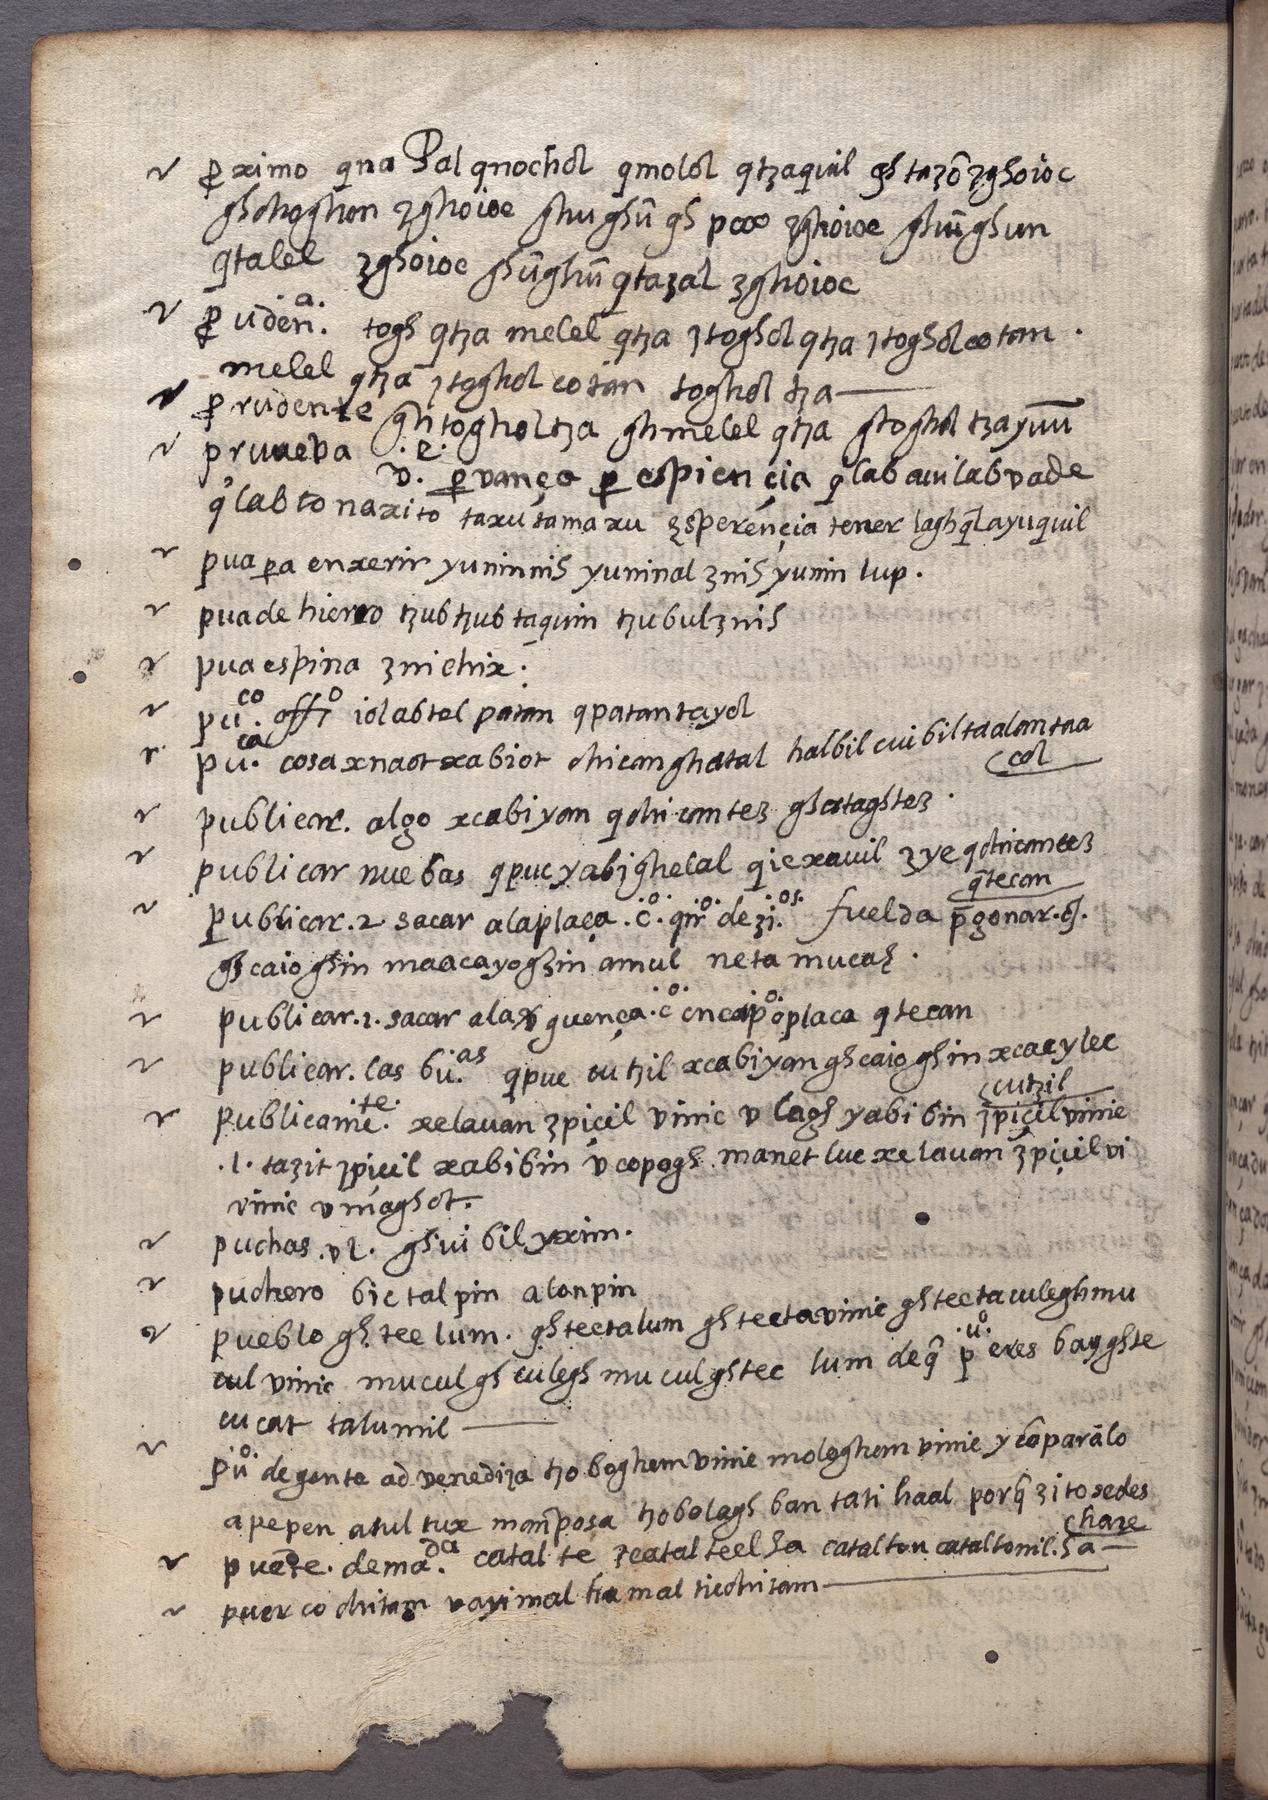 pximo qna Pal qnochol qmolol qtzaquil gh tazō zghoioc
ghchoghon zghoioc ghughū gh pcoo zghoioc ghūghun
qtalel zghoioc ghūghū qtazal zghoioc
puiden.ª togh qtza melel qtza ztoghol qtza ztogholcotan.
melel qtza ztoghol cotan toghol tza
prudente ghtogholtza ghmelel qtza gtoghol tzayuū
prueva .e. v. pvança p espiençia qlab auilab vade
qlab tonaxito taxutamaxu esperençia tener laghqlayuquil
pua pa enxerir yuninnih yuninal znih yunin lup.
pua de hierro tzubtzub taquin tzubulznih
pua espina znichix.
pu.co offiº iolabtel patan qpatantayol
pu.ca cosa xnaot xabiot chicanghatal halbil cuibiltaalantaa
col
publicar. algo xcabiyan qchicantez ghcataghtez.
publicar nuebas qpuc yabighelal qiexauil zye qchicantez
qtecan
publicar.2. sacar ala plaça .cº. qirº. dezi.os. fuelda pgonar.
ghcaioghin maacayoghin amul neta mucah.
publicar.2. sacar ala vguença.cº encapº oplaca qtecan
publicar. las bu.as qpuc cutzil xcabiyan ghcaioghin xcacylec
cutzil
publicamē.te. xelauan zpiçil vinic v lagh yabi bin zpiçil vinic
.l. tazit zpiçil xabibin v copogh manet luc xelauan zpiçil vi
vinic v maghot.
puchas .vl. ghui bil yxim.
puchero bictal pin alanpin
pueblo gh tec lum. ghtectalum ghtectavinic ghtectaculeghmu
cul vinic mucul gh culegh mucul ghtec lum deq̄ p.uº. eres bayghte
cucat talumil
pu.º de gente ad venediza tzoboghem vinic mologhem vinic y cōparālo
a pepen atul tux mariposa tzobolagh ban tati haal porq̄ zitosedes
chare
puēte. demª.da catal te zcatal teel ha catalton cataltonil.ha
puerco chitam vayimal hamal tiechitam